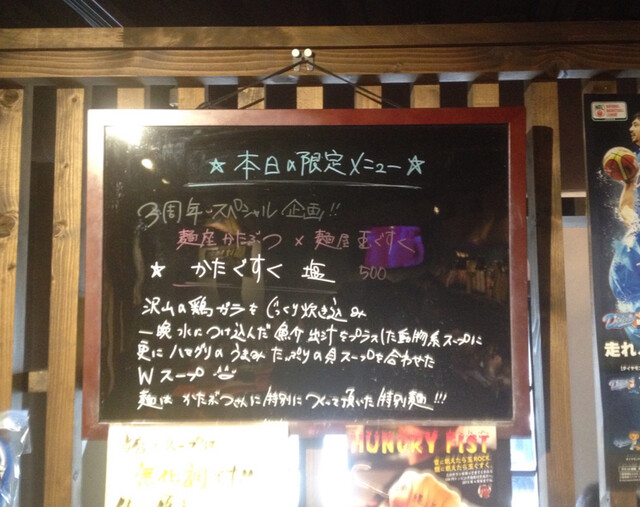 ☆本日の限定メニュー☆
3周年スペシャル企画!!
麺座かたぶつ×麺屋玉ぐすく
★かたぐすく 塩 500
沢山の鶏ガラをじっくり炊き込み
一晩水につけ込んだ魚介出汁をプラスした動物系スープに
更にハマグリのうまみたっぷりの貝スープを合わせた
Wスープ
麺はかたぶつさんに特別につくって頂いた特別麺!!!
HUNGRY FIST
走れ